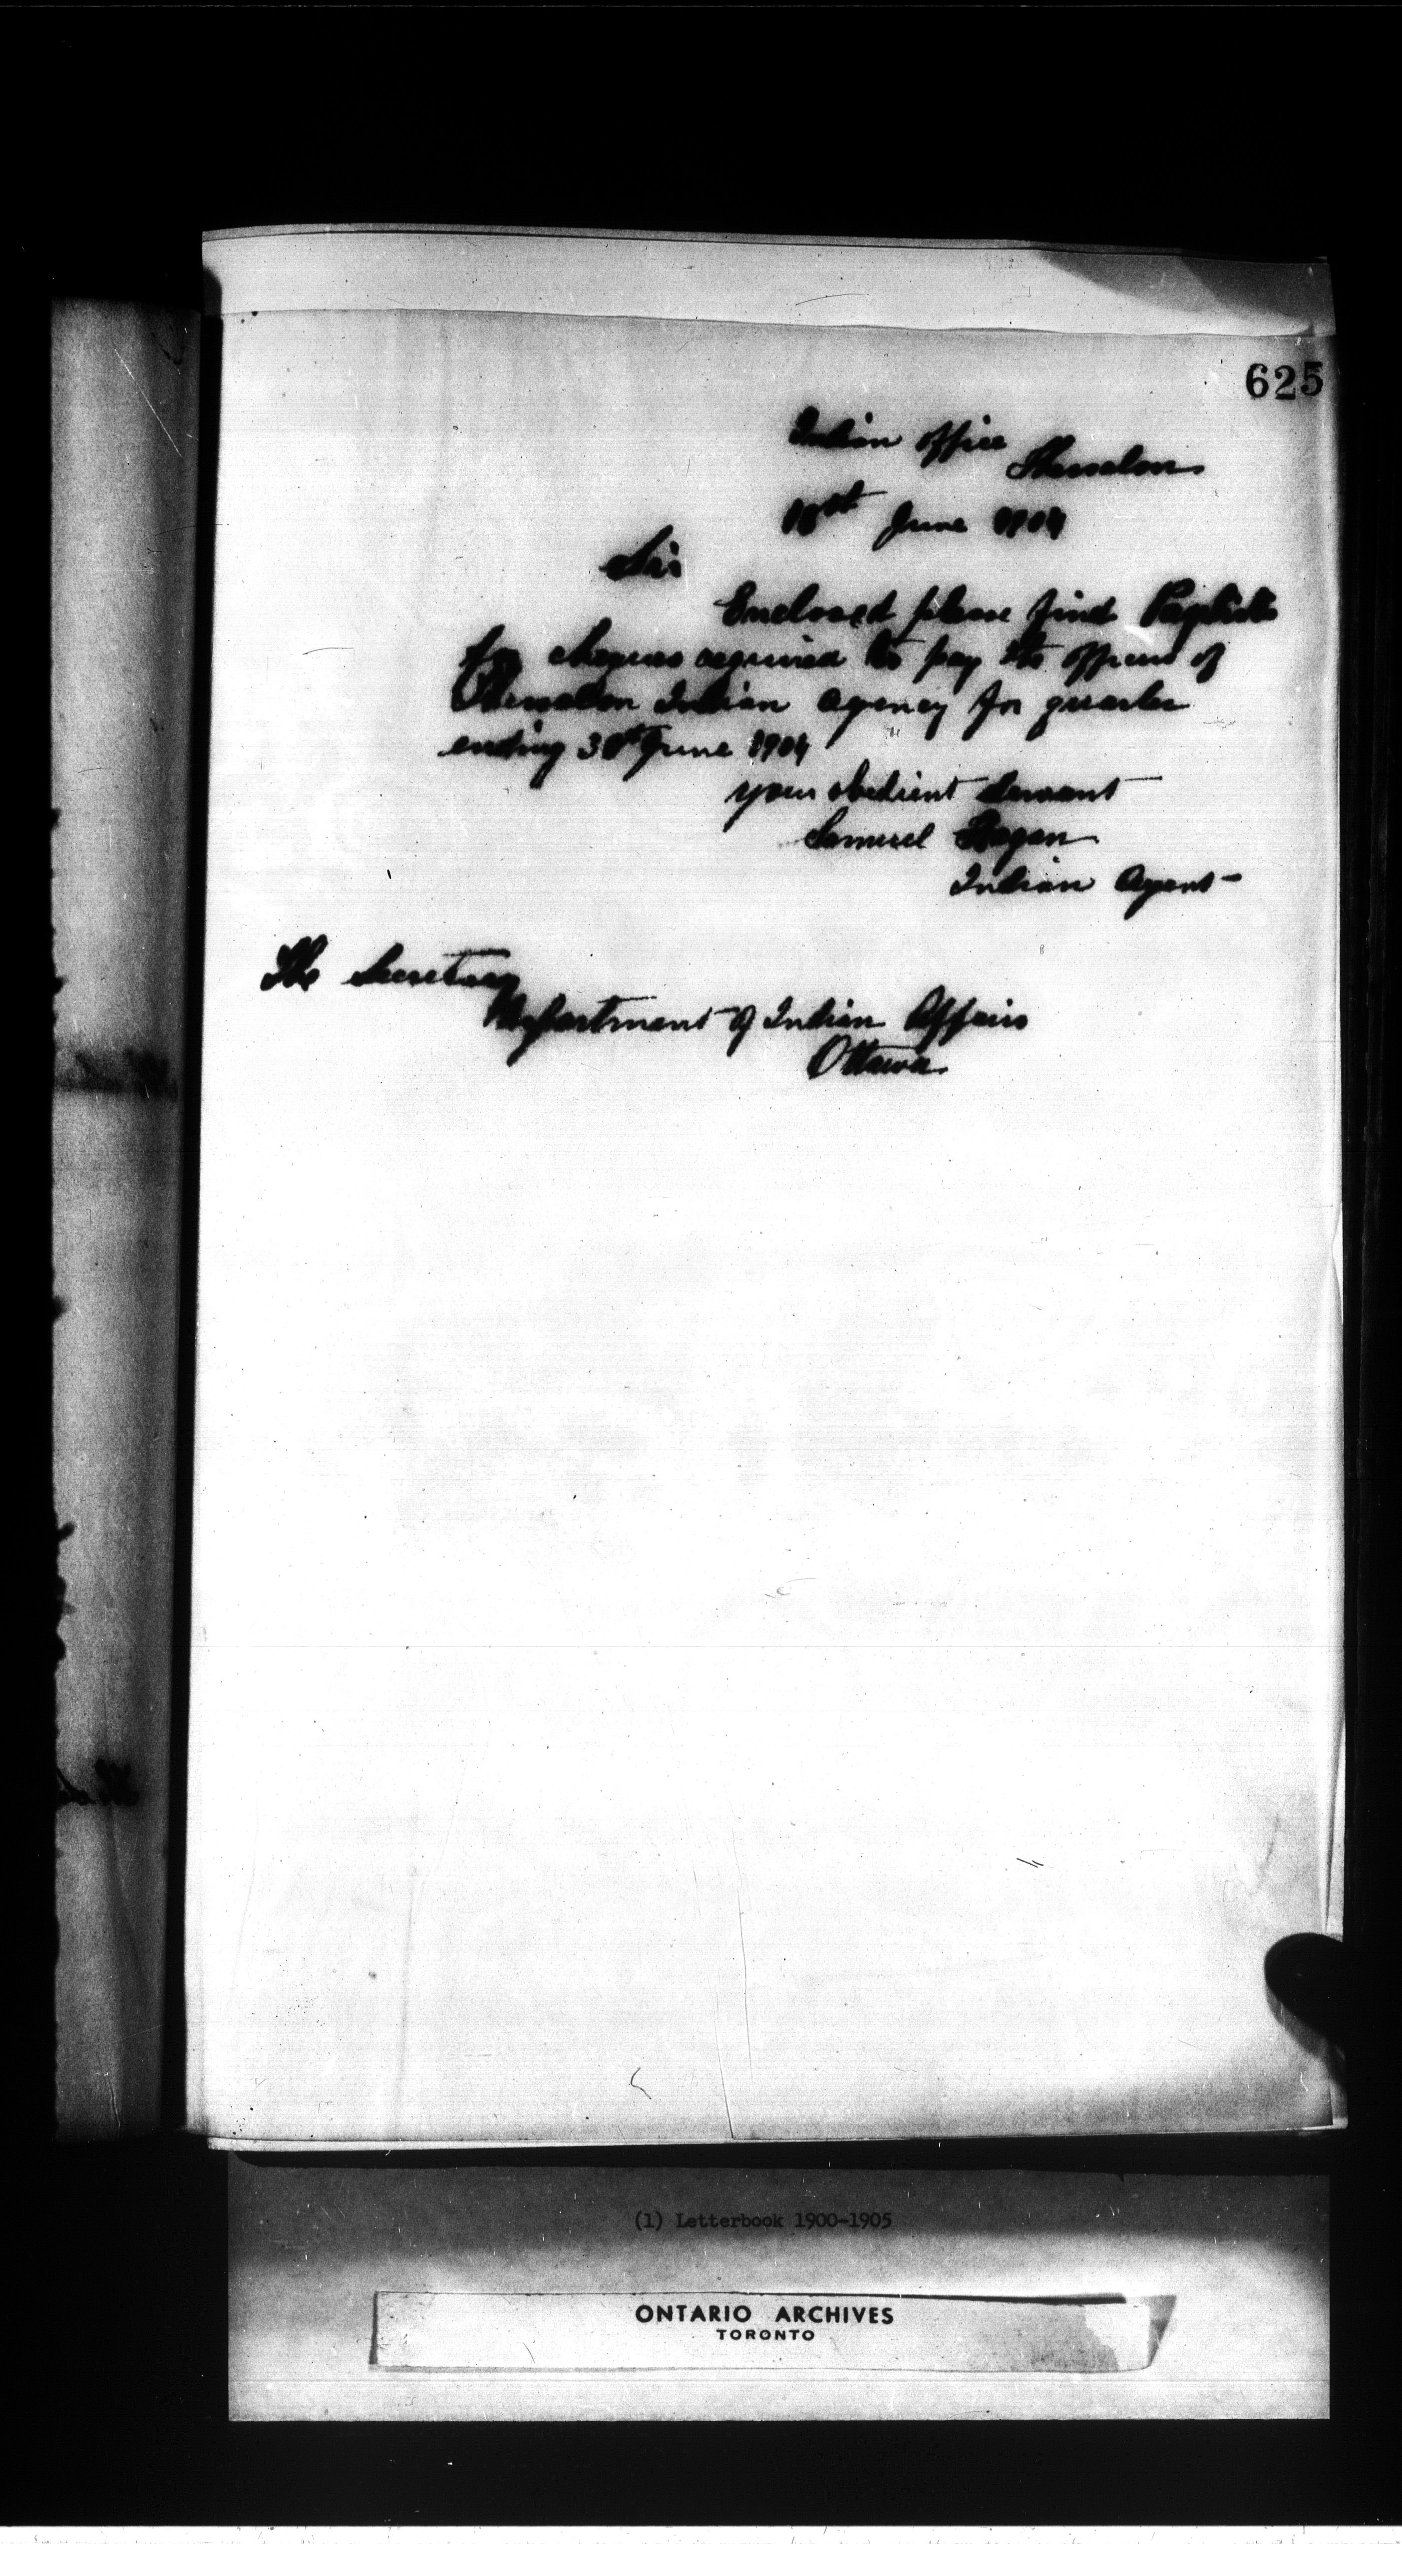 625
Indian office
Thessalon
June 1904
Sir
Enclosed please find Paylist
for cheques required to pay the officers of
Thessalon Indian agency for quarter
ending 30th June 1904
your obedient servant
Samuel Hagan
Indian Agent
The Secretary
Department of Indian Affairs
Ottawa
(1) Letterbook 1900-1905
ONTARIO ARCHIVES
TORONTO